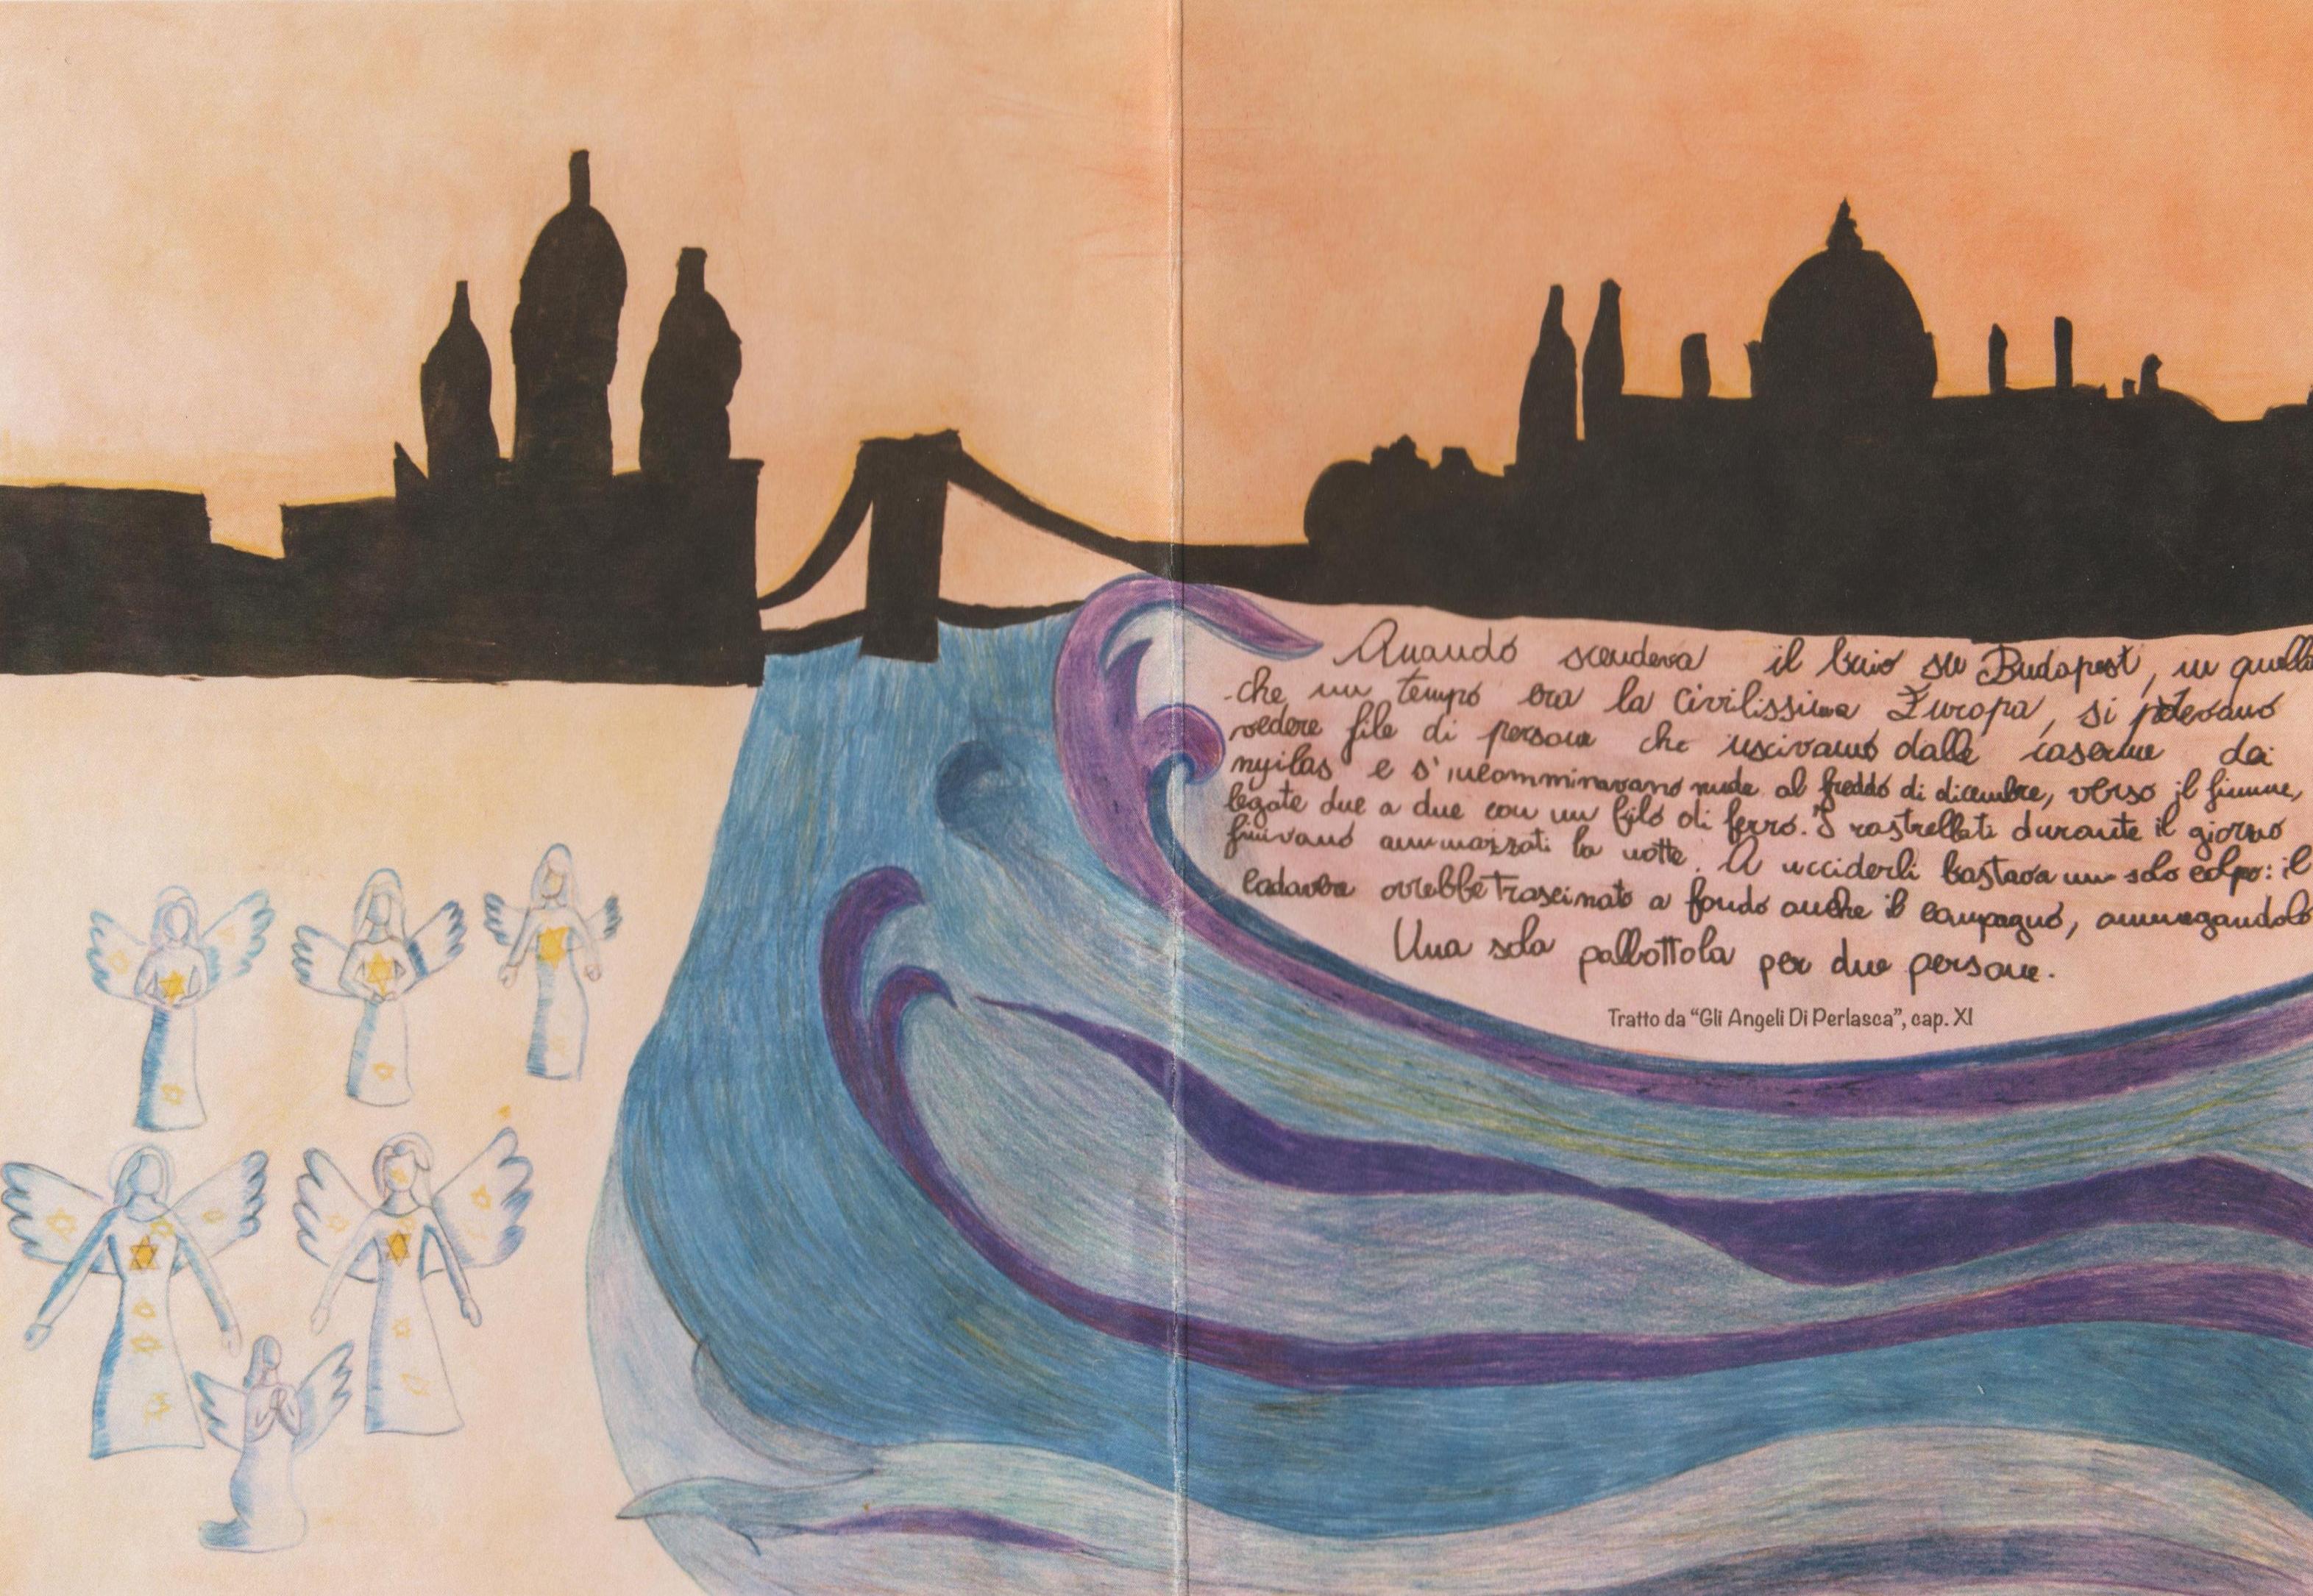 Quando scendeva il buio su Budapest, in quella
che un tempo era la civilissima Europa, si potevano
vedere file di persone che uscivano dalle caserme dei
nyilas e s'incomminavano nude al freddo di dicembre, verso il fiume,
legate due a due con un filo di ferro. I rastrellati durante il giorno
finivano ammazzati la notte. A ucciderli bastava un solo colpo: il
cadavere avrebbe trascinato a fondo anche il compagno, annegandolo
Una sola pallottola per due persone.
Tratto da "Gli Angeli Di Perlasca", cap. XI